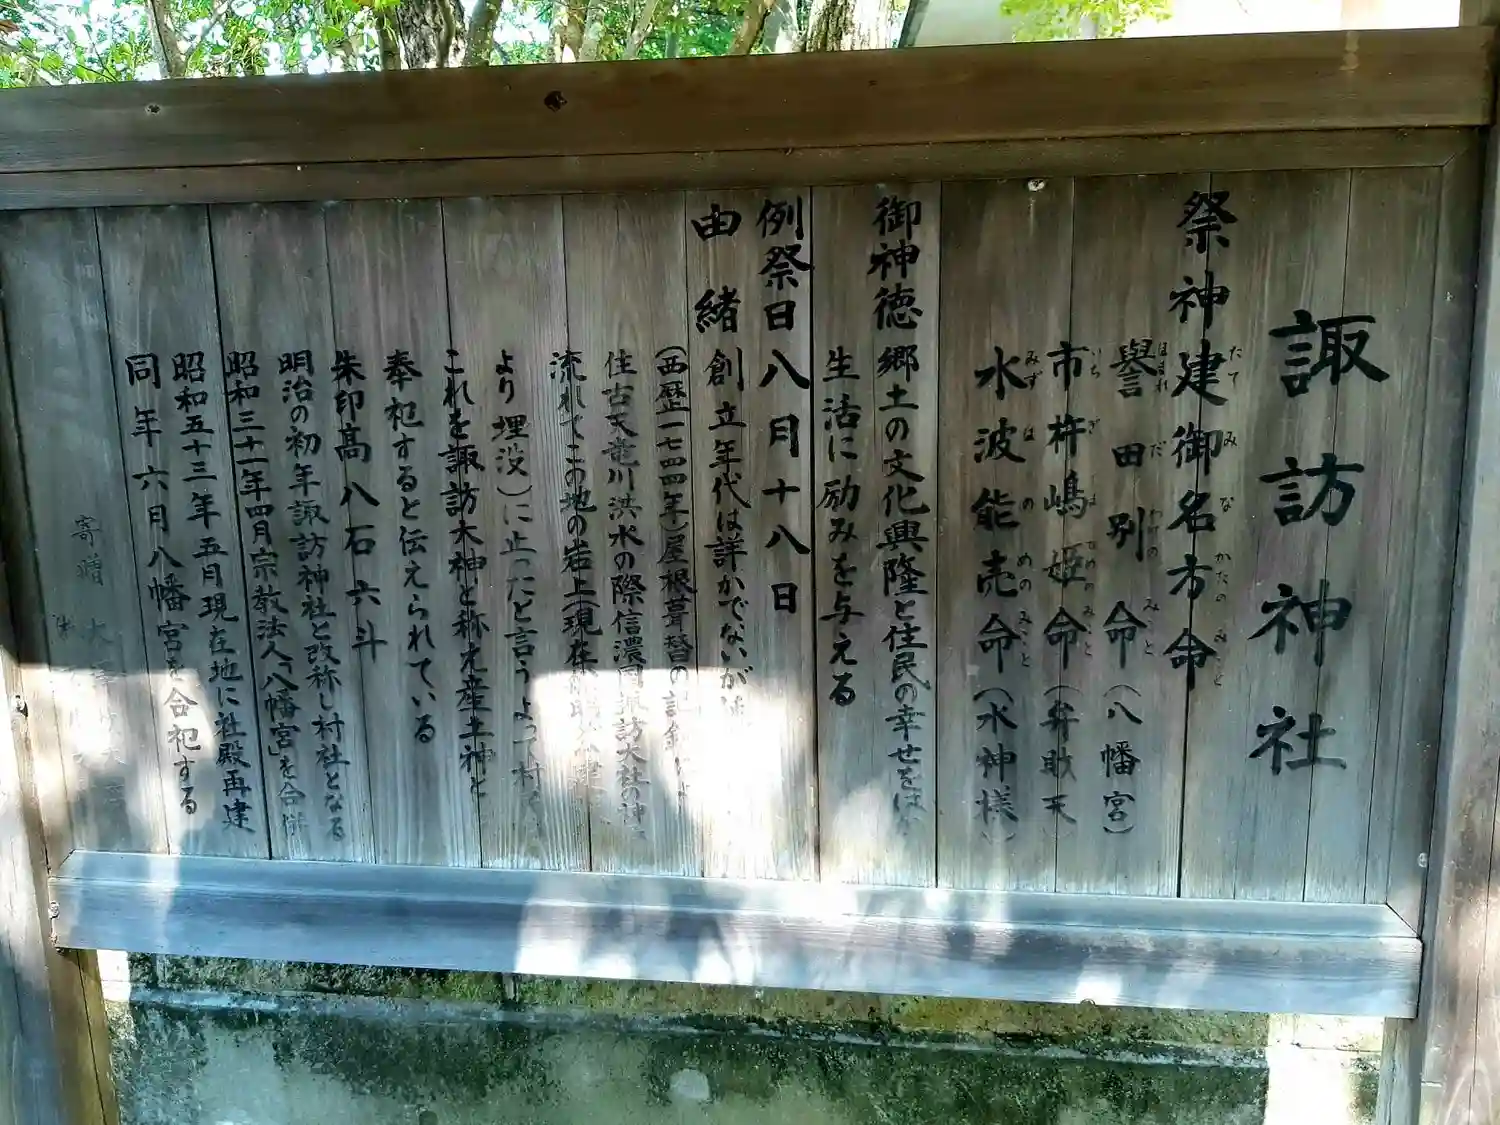 諏訪神社
祭神 建御名方命
たてみなかたのみこと
譽田別命(八幡宮)
ほまれだわけのみこと
市杵嶋姫命(弁財天)
いちぎしまひめのみこと
水波能売命(水神様)
みずはのめのみこと
御神徳 郷土の文化興隆と住民の幸せをは
生活に励みを与える
例祭日 八月十八日
由緒 創立年代は詳かでないが
(西歴一七四四年)屋根葺替の記録
住古天竜川洪水の際信濃国諏訪大社の神
流れてこの地の岩上(現在
より埋没)に止ったと言うよって村
これを諏訪大神と称え産土神と
奉祀すると伝えられている
朱印高八石六斗
明治の初年諏訪神社と改称し村社となる
昭和三十一年四月宗教法人「八幡宮」を合併
昭和五十三年五月現在地に社殿再建
同年六月八幡宮を合祀する
寄贈 大